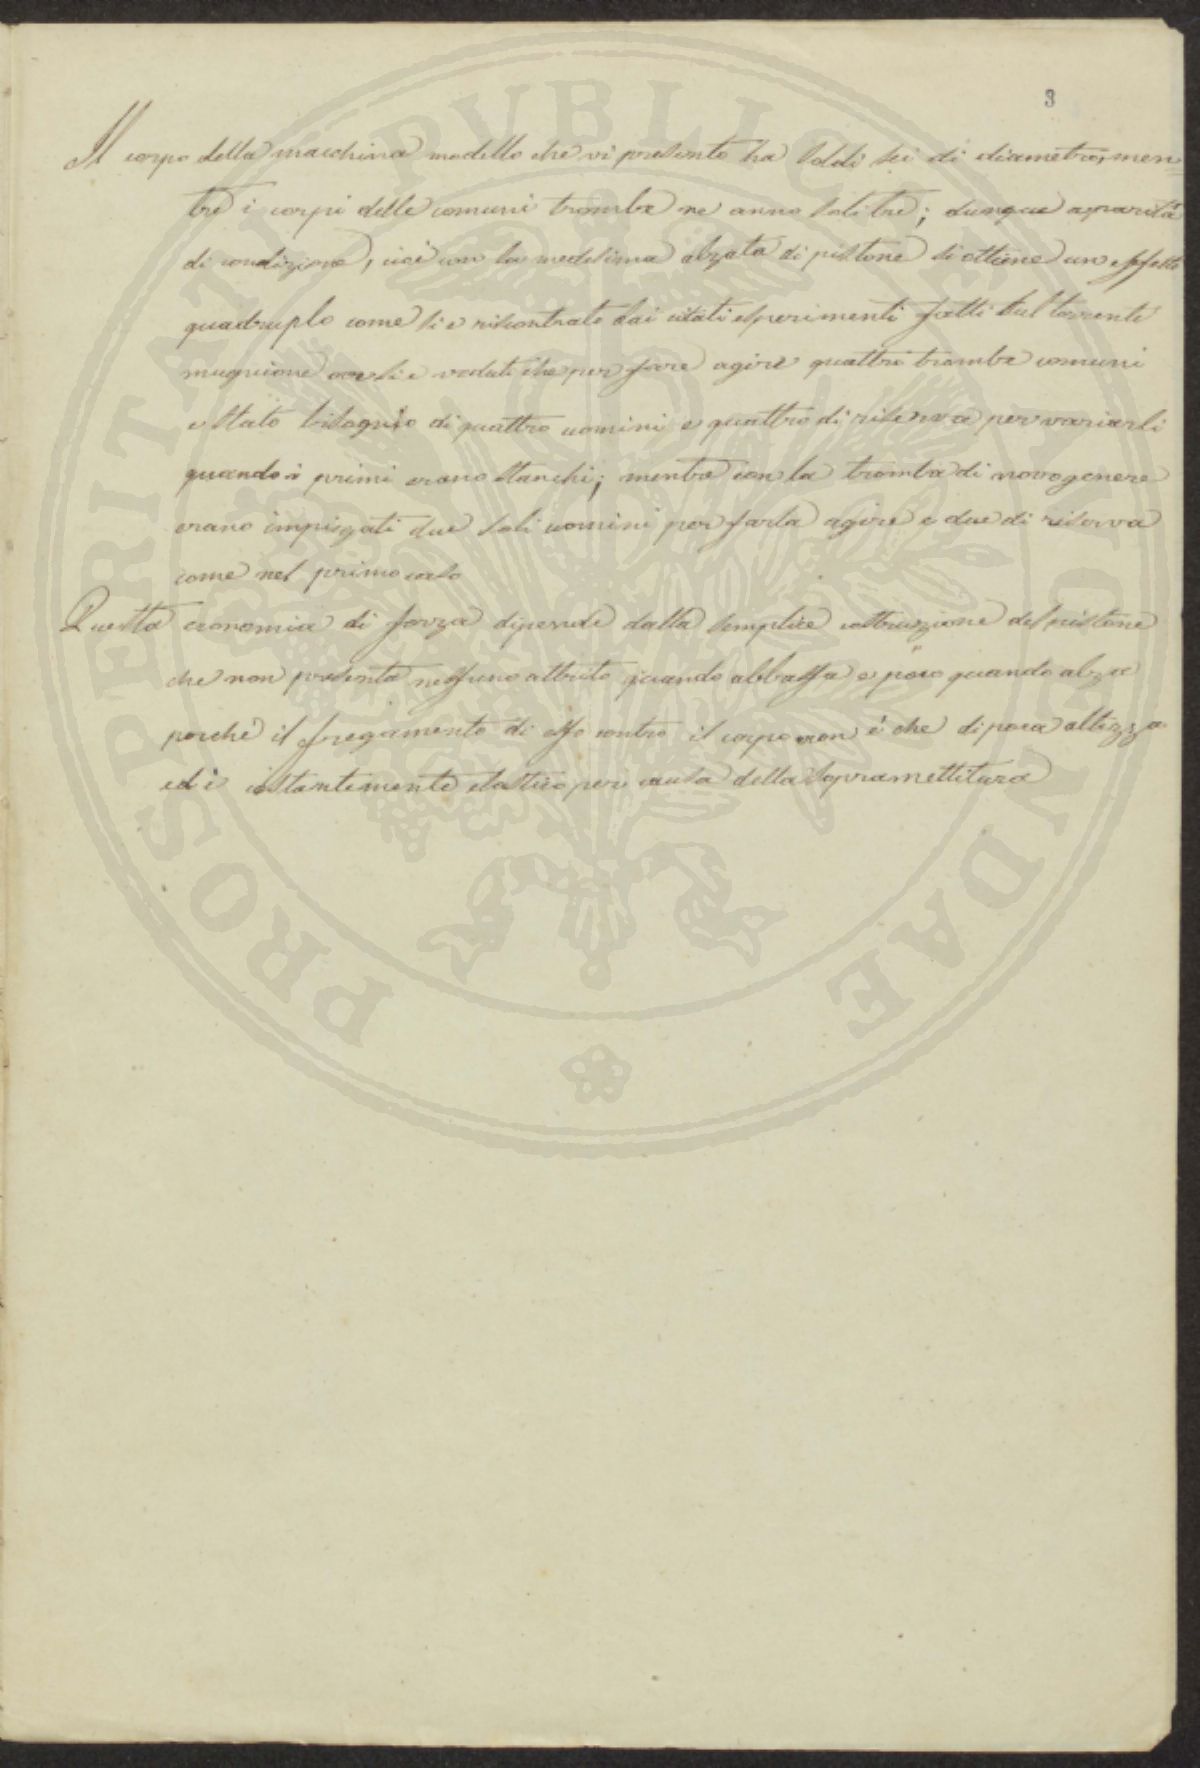 3
Il corpo della macchina modello che vi presento ha soldi sei di diametro, men
tre i corpi delle comuni trombe ne anno soli tre; dunque a parità
di condizione, cioè con la medesima alzata di pistone si ottiene un effetto
quadruplo come si è riscontrato dai citati esperimenti fatti sul torrente
mugnione ove si è veduto che per fare agire quattro trombe comuni
e stato bisognio di quattro uomini e quattro di riserva per variarli
quando i primi erano stanchi; mentre con la tromba di novo genere
erano impiegati due soli uomini per farla agire e due di riserva
come nel primo caso
Questa economia di forza dipende dalla semplice costruzione del pistone
che non presenta nessuno attrito quando abbassa e poco quando alza
perché il fregamento di esso contro il corpo non è che di poca altezza
ed è costantemente elastico per causa della sopramettitura
PROSPERITATI PVBLICAE AVGENDAE